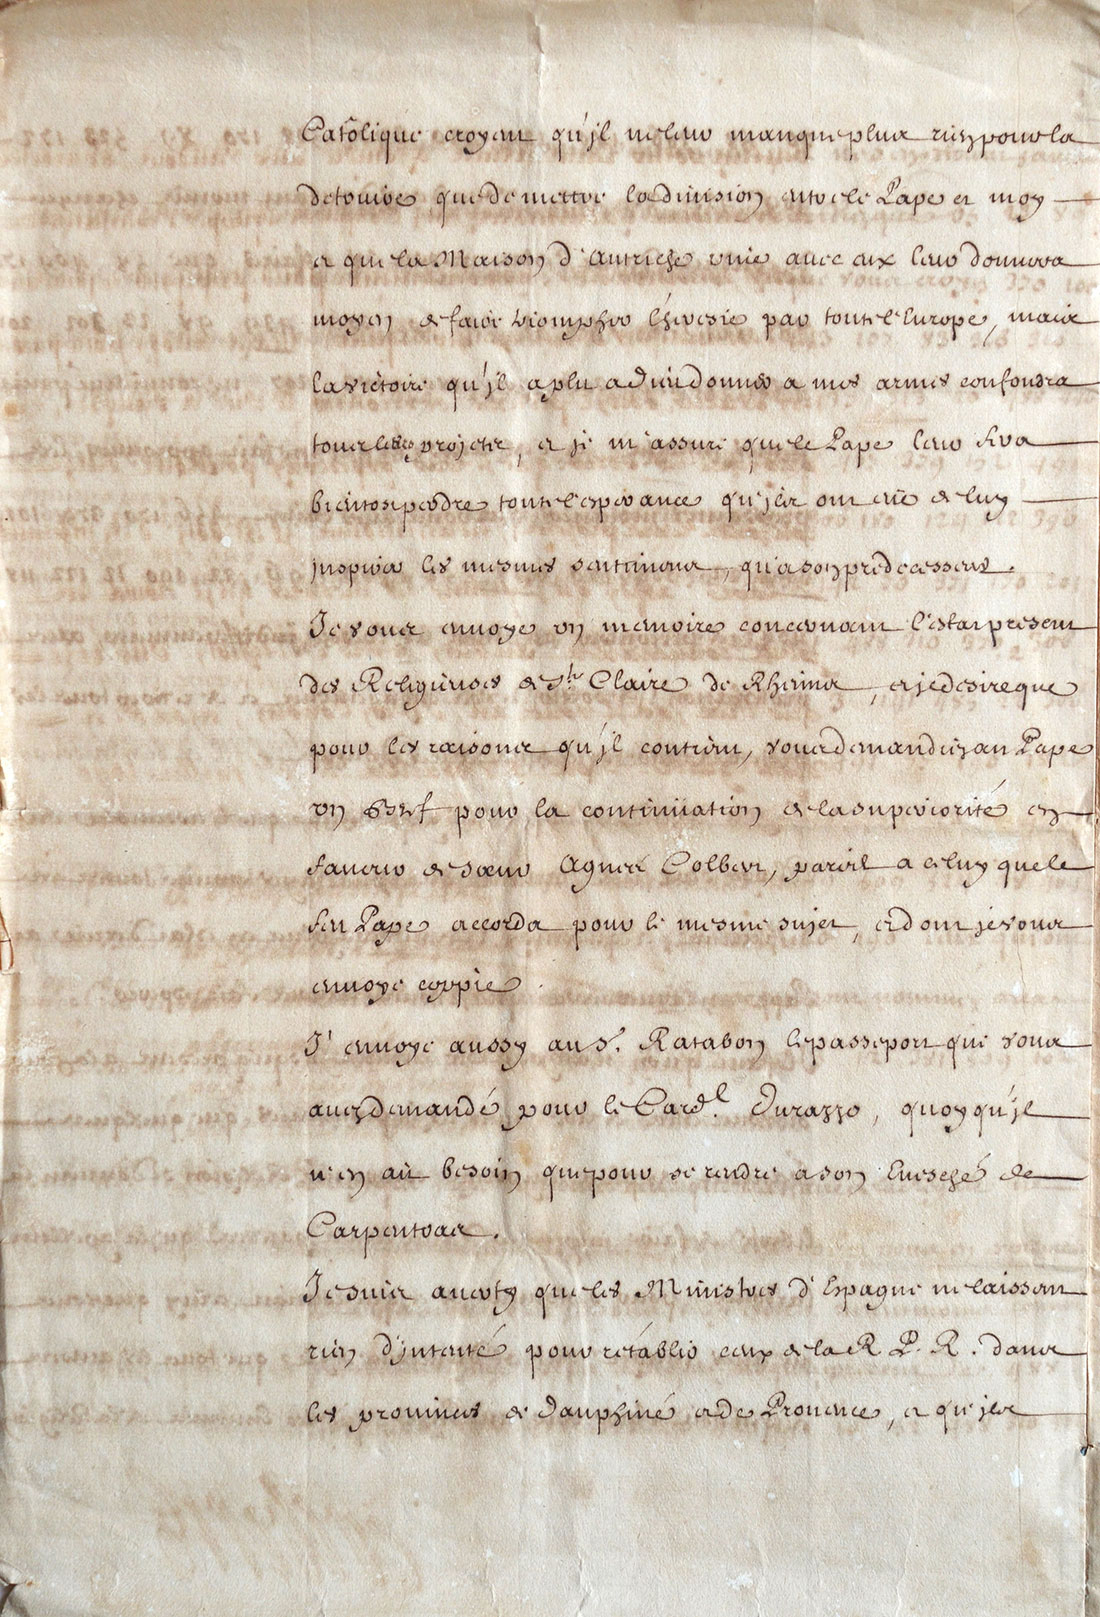 Catholique croyent qu'jl ne leur manque plus rien pour la
detruire que de mettre la division entre le Pape et moy
et que la Maison d'Autriche unie avec eux leur donnera
moyen de faire triompher l'heresie par toute l'Europe, mais
la victoire qu'jl a plu a dieu donner a mes armes confondra
tous les projets, et je m'assure que le Pape leur fera
bientost perdre toute l'esperance qu'jls ont eüe de luy
jnspirer les mesmes sentimens, qu'a son predecesseur.
Je vous envoye un memoire concernant l'estat present
des Religieuses de Ste Claire de Rheims, et je desire que
pour les raisons qu'jl contient, vous demandiez au Pape
un Bref pour la continüation de la superiorité en
faveur de soeur Agnes Colbert, pareil a celuy que le
feu Pape accorda pour le mesme sujet, et dont je vous
envoye coppie.
J'envoye aussy au Sr. Ratabon le passeport que vous
avez demandé pour le Cardl. Durazzo, quoy qu'jl
n'en ait besoin que pour se rendre a son Evesché de
Carpentras.
Je suis averty que les Ministres d'Espagne ne laissent
rien d'jntenté pour rétablir ceux de la R. P. R. dans
les provinces de Dauphiné et de Provence, et qu'jls